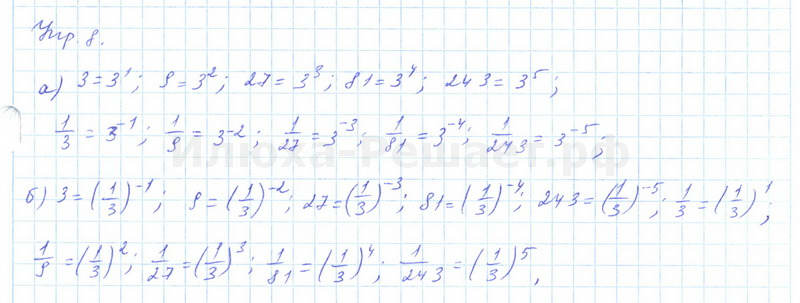 Упр. 8.
а) 3 = 3^1; 9 = 3^2; 27 = 3^3; 81 = 3^4; 243 = 3^5;
1/3 = 3^-1; 1/9 = 3^-2; 1/27 = 3^-3; 1/81 = 3^-4; 1/243 = 3^-5;
Илюха-Решает.рф
б) 3 = (1/3)^-1; 9 = (1/3)^-2; 27 = (1/3)^-3; 81 = (1/3)^-4; 243 = (1/3)^-5; 1/3 = (1/3)^1;
1/9 = (1/3)^2; 1/27 = (1/3)^3; 1/81 = (1/3)^4; 1/243 = (1/3)^5,